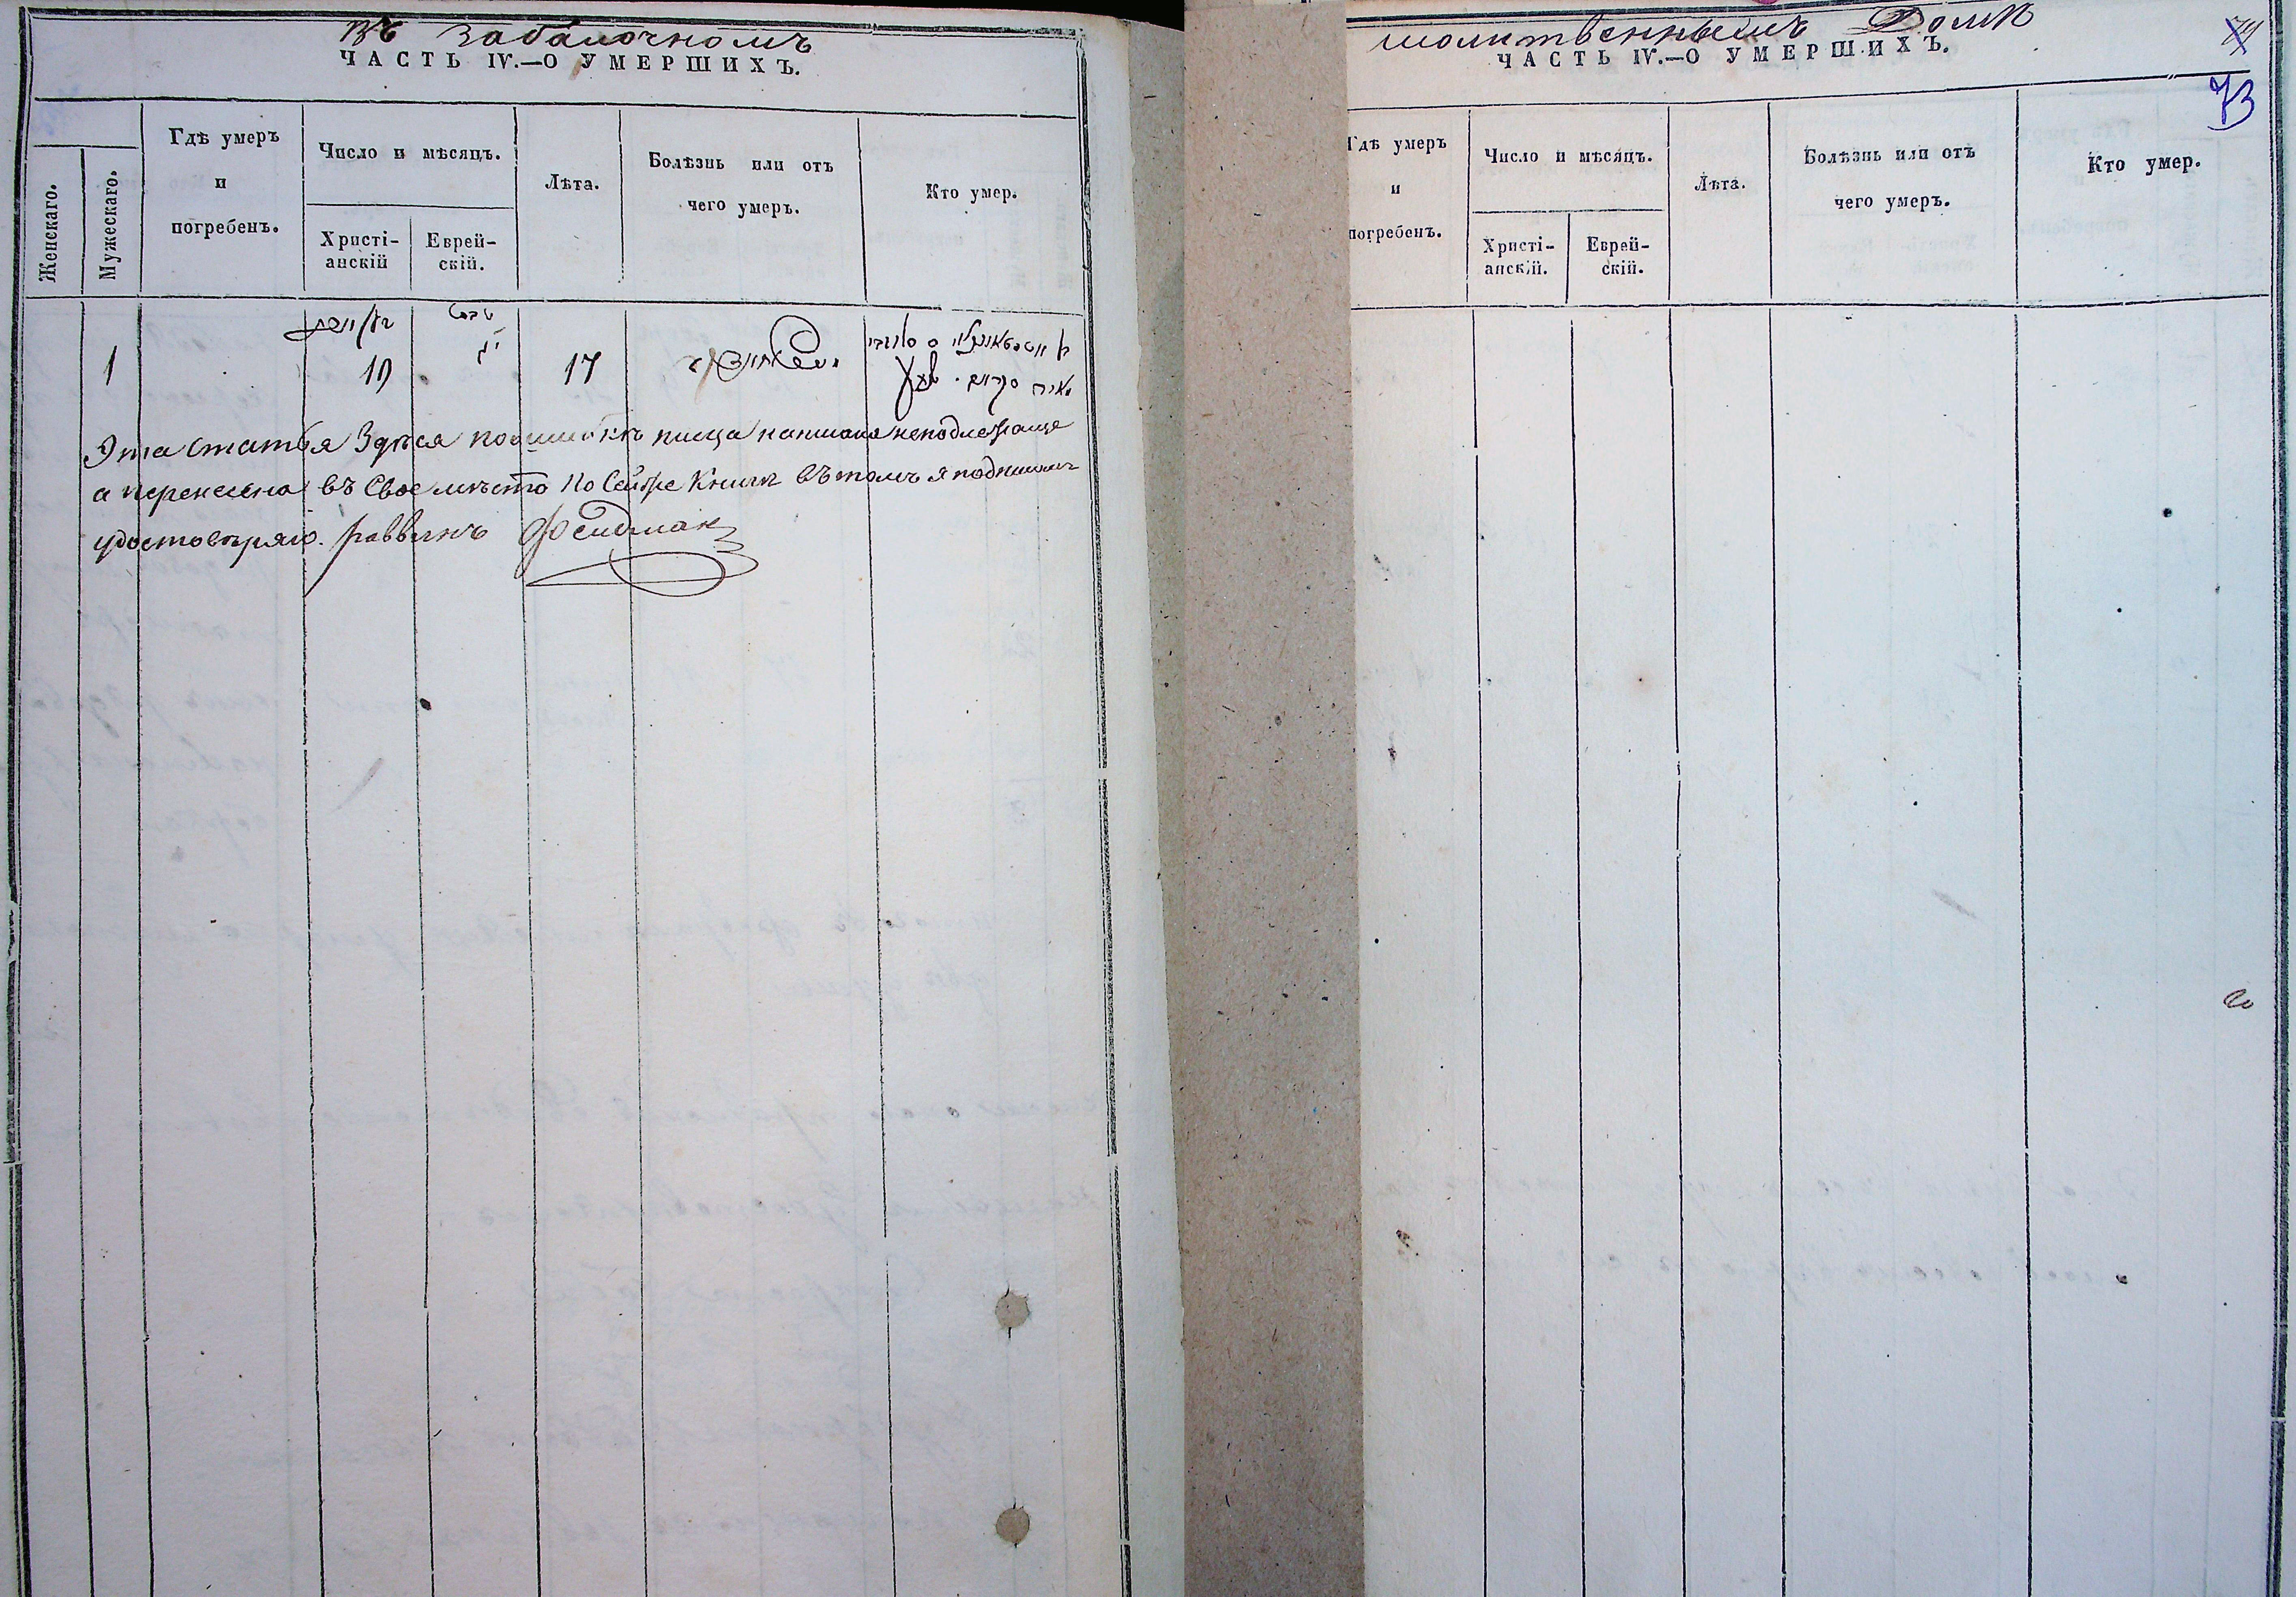 Въ Забалочномъ
ЧАСТЬ IV.—О УМЕРШИХЪ.
Женскаго.
Мужескаго.
Гдѣ умеръ
и
погребенъ.
Число и мѣсяцъ.
Христі-
анскій
Еврей-
скій.
Лѣта.
Болѣзнь или отъ
чего умеръ.
Кто умер.
1
10
17
Эта статья Здѣся по ошибкѣ писца написана неподлежаще
а перенесена въ Свое мѣсто по Сей же Книги въ томъ я подписомъ
удостовѣряю. Раввинъ Фельдман
молитвеннымъ Домѣ
ЧАСТЬ IV.—О УМЕРШИХЪ.
73
Гдѣ умеръ
и
погребенъ.
Число и мѣсяцъ.
Христі-
анскій.
Еврей-
скій.
Лѣта.
Болѣзнь или отъ
чего умеръ.
Кто умер.